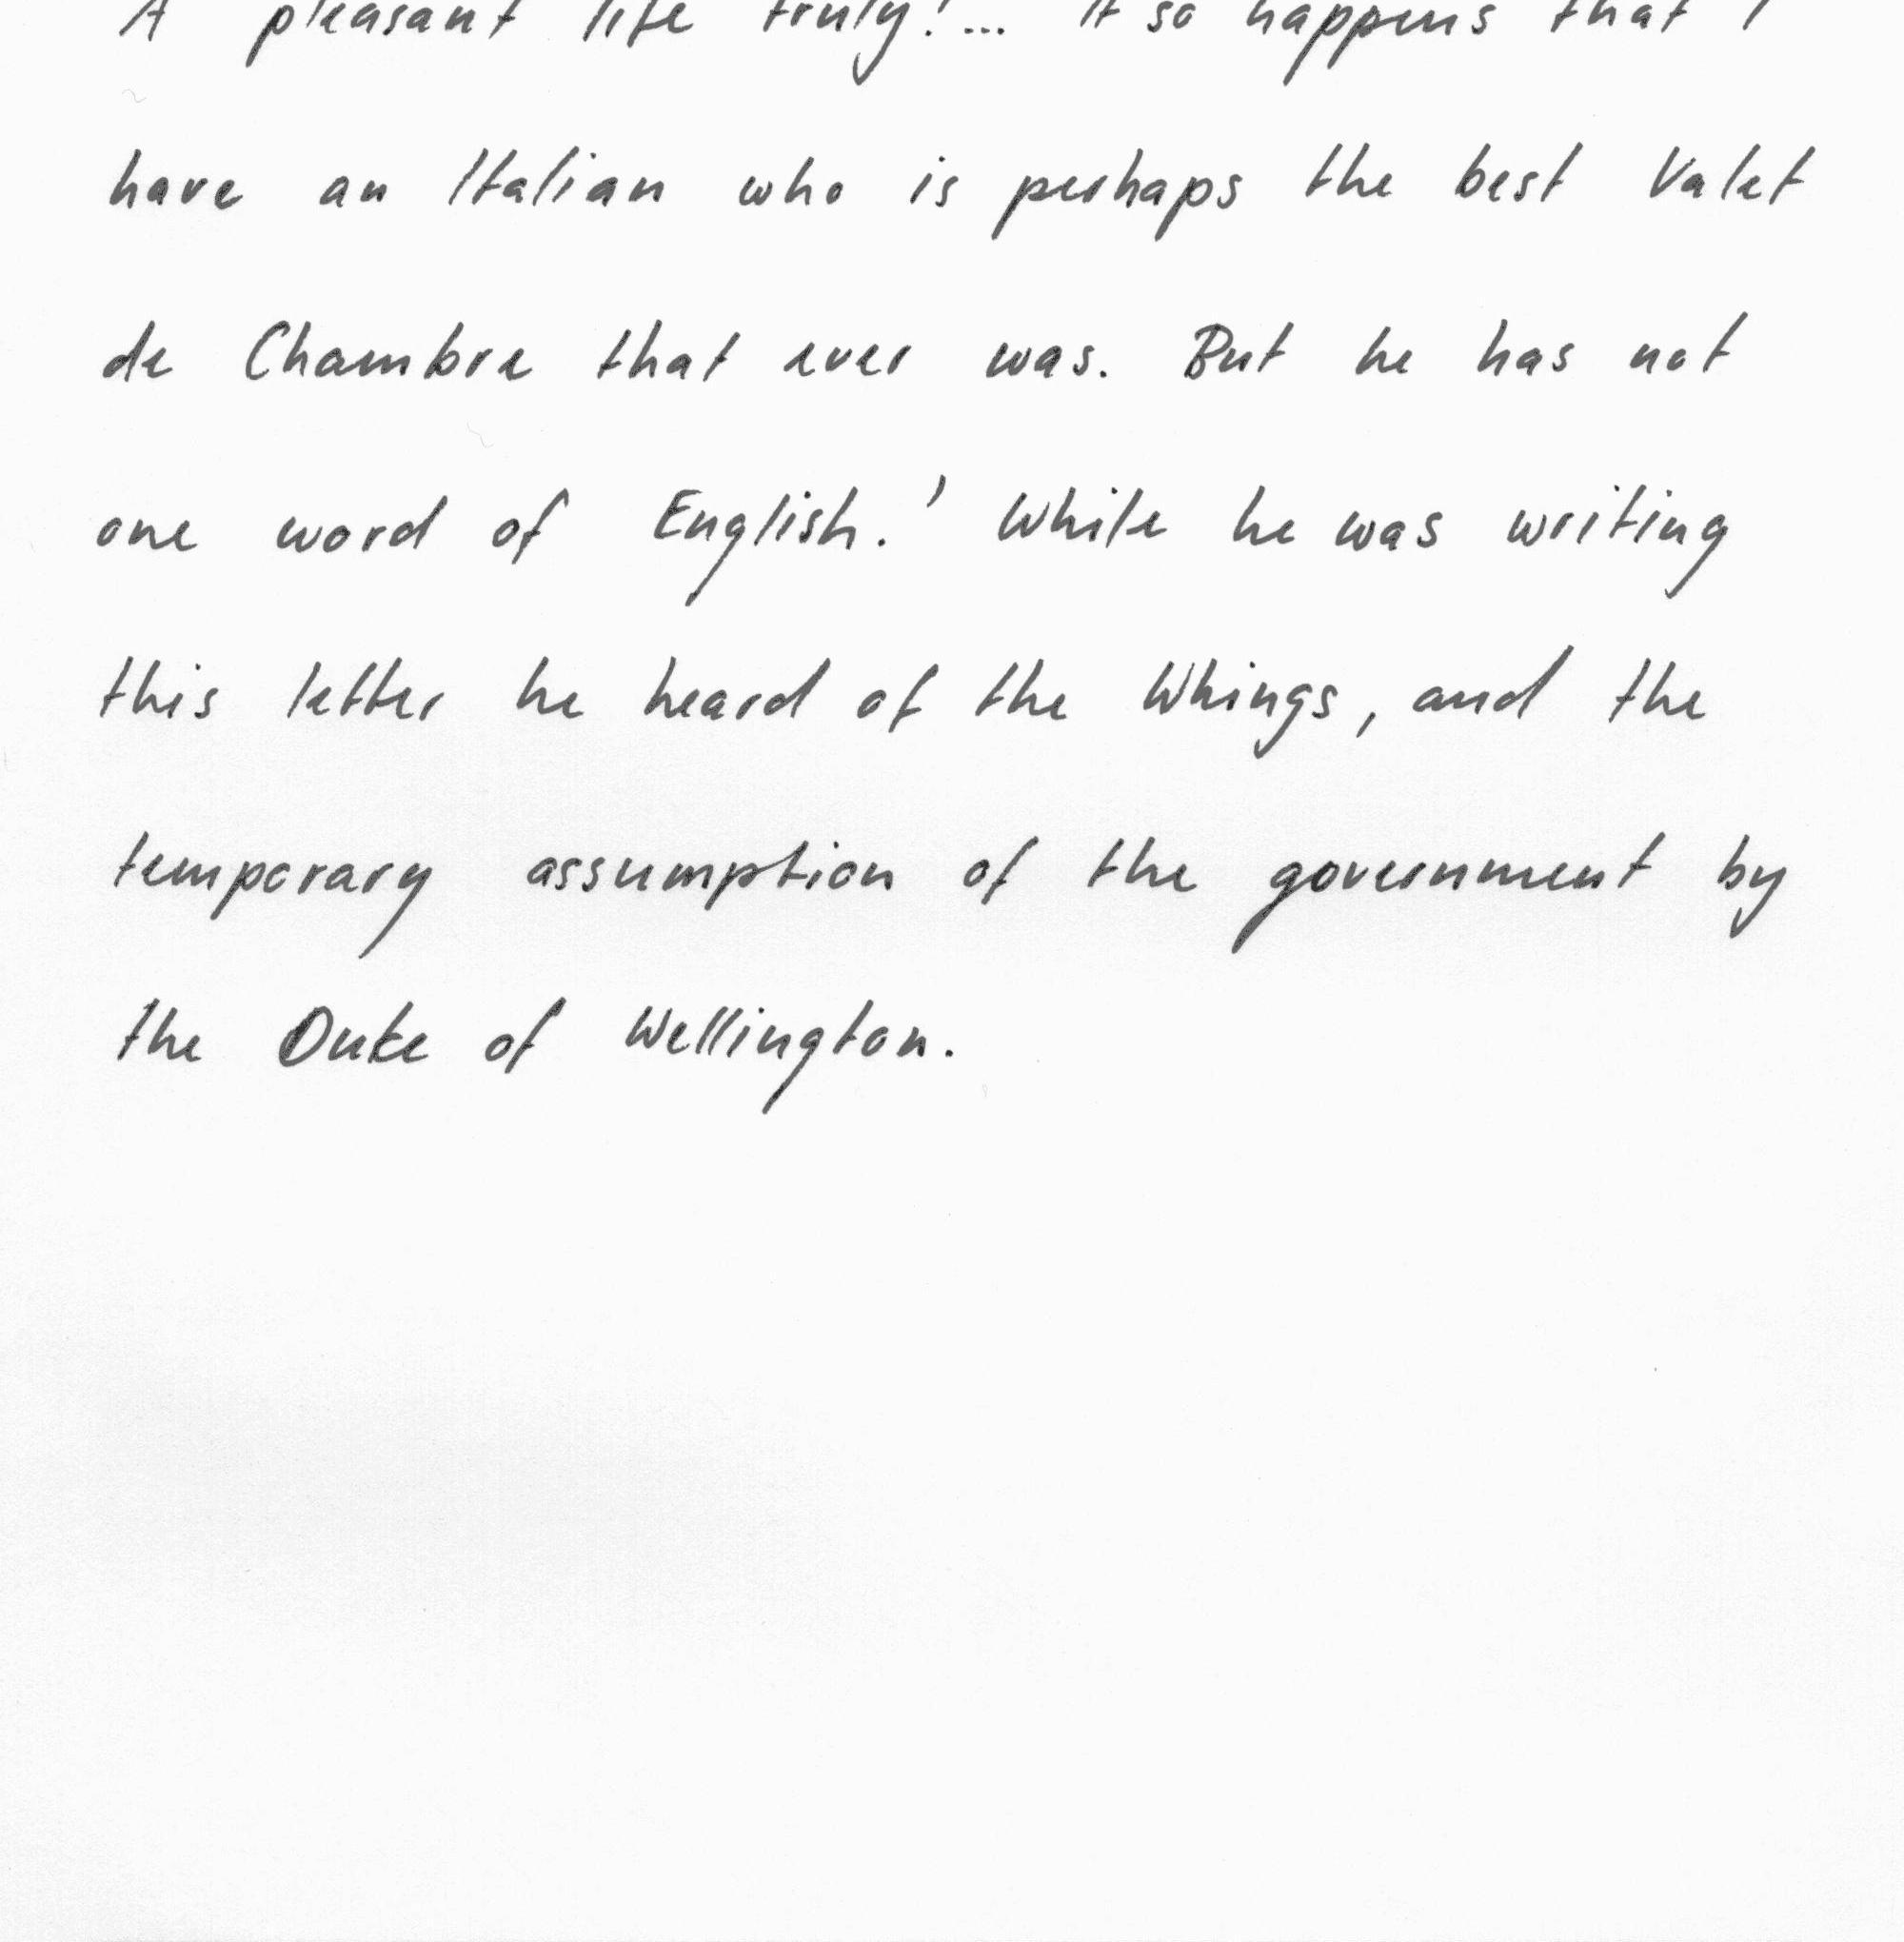 A pleasant life truly! ... It so happens that I
have an Italian who is perhaps the best Valet
de Chambre that ever was. But he has not
one word of English.' While he was writing
this letter he heard of the Whings, and the
temporary assumption of the government by
the Duke of Wellington.